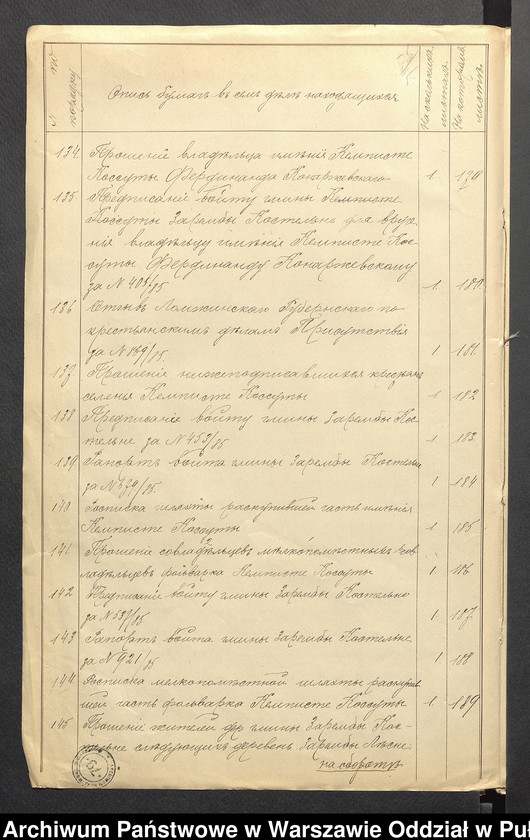 №
порядку
Опись бумагъ въ семъ дѣлѣ находящихся
На сколькихъ листахъ
На которомъ листѣ
134. Прошеніе владѣльца имѣнія Кемписте
Коссуты Фердинанда Конаржевскаго 1 179
135 Предписаніе войту гмины Кемписте
Коссуты Зарембы Костельне для вруче-
нія владѣльцу имѣнія Кемписте Кос-
суты Фердинанду Конаржевскому
за № /85 1 180
136 Отзывъ Ломжинскаго Губернскаго по
крестьянскимъ дѣламъ Присутствія
за № 169/85. 1 181
137 Прошеніе нижеподписавшихся крестьянъ
селенія Кемписте Коссуты 1 182
138 Предписаніе войту гмины Зарембы Ко-
стельне за № 453/85 1 183
139 Рапортъ войта гмины Зарембы Костельне
за № 579/85. 1 184
140 Росписка шляхты раскупившей часть имѣнія
Кемписте Коссуты 1 185
141 Прошеніе совладѣльцевъ мелкопомѣстныхъ сов
ладѣльцевъ фольварка Кемписте Коссуты 1 186
142 Предписаніе войту гмины Зарембы Костельно
за № 537/85 1 187
143 Рапортъ войта гмины Зарембы Костельне
за № 921/85 1 188
144 Росписка мелкопомѣстной шляхты раскупив
шей часть фольварка Кемписте Коссуты 1 189
145 Прошеніе жителей гмины Зарембы Кос-
тельне слѣдующихъ деревень Зарембы
на оборотѣ
Archiwum Państwowe w Warszawie Oddział w Pu